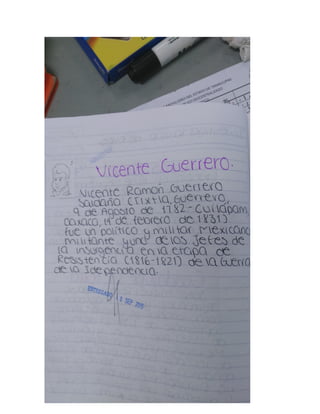 Vicente Guerrero.
Vicente Ramón Guerrero
Saldaña (Tixtla, Guerrero,
9 de Agosto de 1782 - Cuilapam
Oaxaca, 14 de febrero de 1831)
fue un político y militar Mexicano
militante y uno de los Jefes de
la insurgencia en la etapa de
Resistencia (1816-1821) de la Guerra
de la Idependencia.
ENTREGADO
SEP